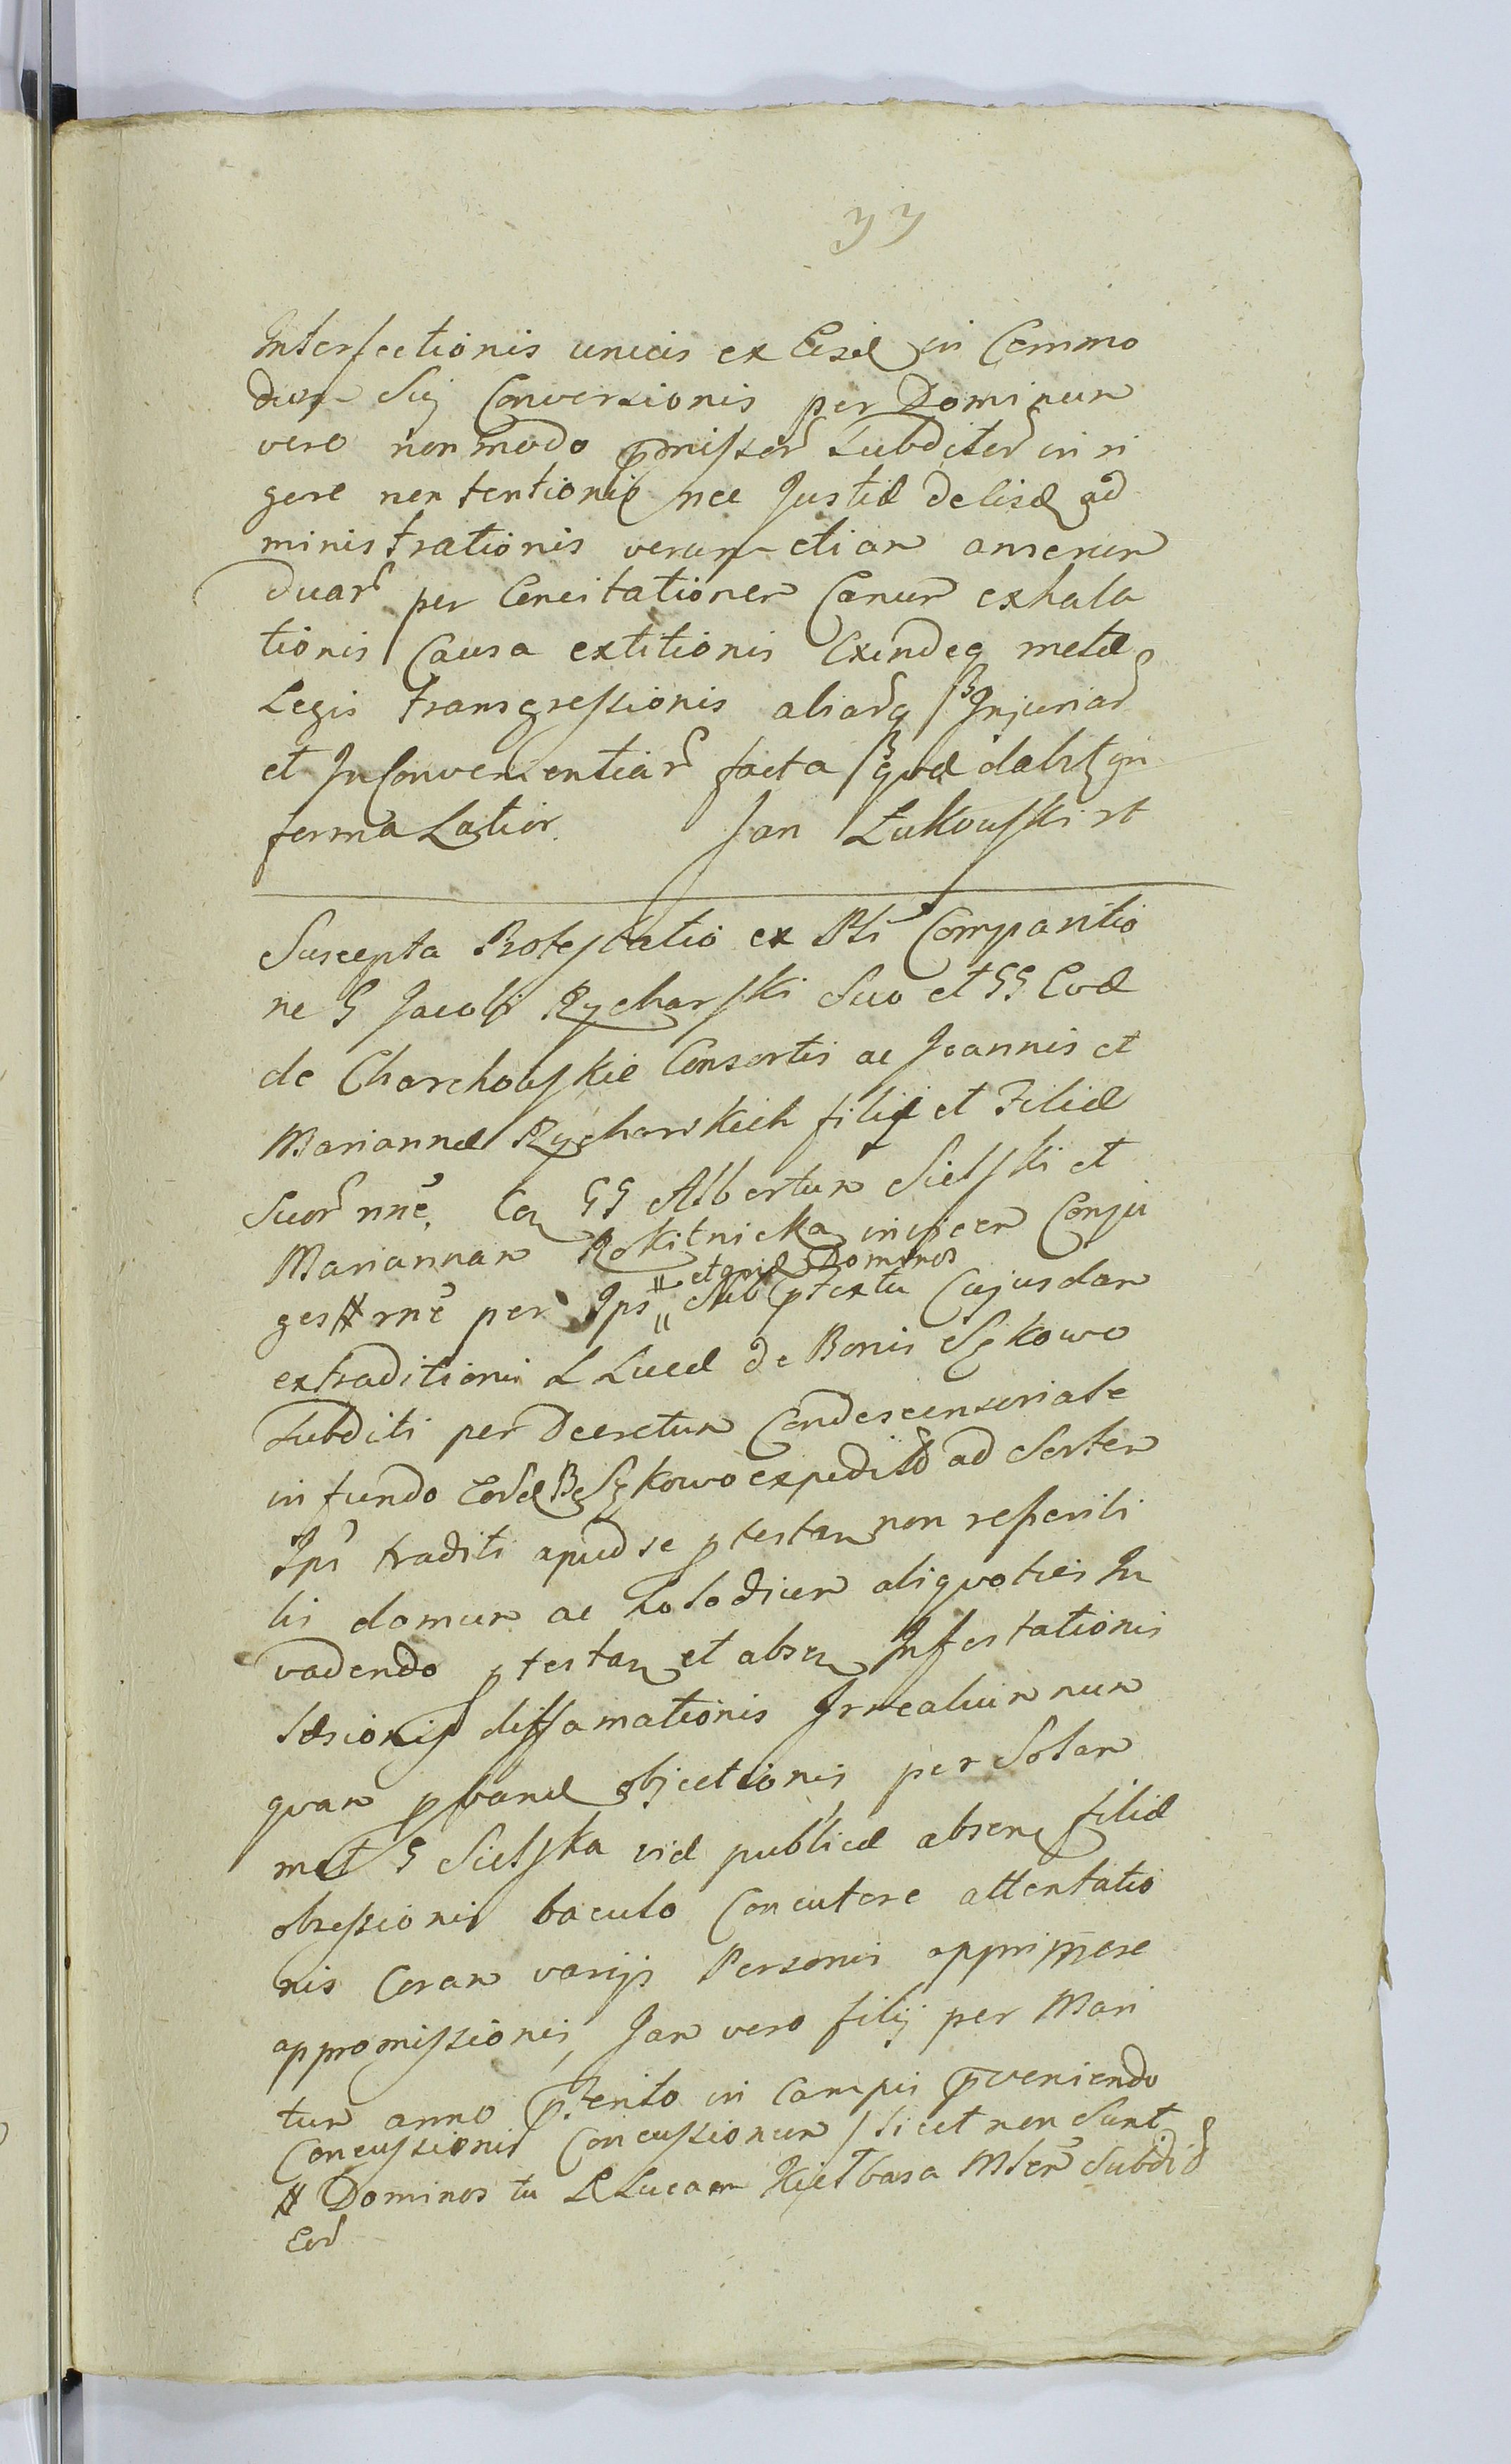 33
Interfectionis unicis ex Eisd in Commo
dum Sui Conversionis per Dominum
vero non modo pmissor Subditor in ri
gore non tentionis nec Justae de lisd ad
ministrationis verum etiam anserum
duar per Concitationem Canum exhala
tionis Causa extitionis Exindeq metae
Legis transgressionis aliarq Injuriar
et Inconvenientiar facta quae dabit in
forma Latior. Jan Łukowski rt
Suscepta Protestatio ex Psli Comparitio
ne G Jacobi Rycharski Suo et GG Evae
de Charchowskie Consortis ac Joannis et
Mariannae Rycharskich filij et Filiae
Suor nne, Con GG Albertum Sielski et
Mariannam Rokitnicka invicem Conju
ges # rne per Ips " et qnd Dominos
" Sub ptextu Cujusdam
extraditionis L Lucae de Bonis Sękowo
Subditi per Decretum Condescensoriale
in fundo Eord B Sękowo expedito ad Sortem
Ips traditi apud se ptestan non reperibi
lis domum ac Lolodium aliquoties In
vadendo ptestan et absen Infestationis
Laesionis diffamationis Irrealium nun
quam pband objectionis per Solam
met G Sielska viae publicae absen filiae
obsessionis baculo Concutere attentatio
nis Coram varijs Personis opprimere
appromissionis, Jan vero filij per Mari
tum anno pterito in Campis pveniendo
Concussionis Concussionum / licet non Sunt
# Dominos tu L Lucam Kiełbasa Mten Subdid
Eor